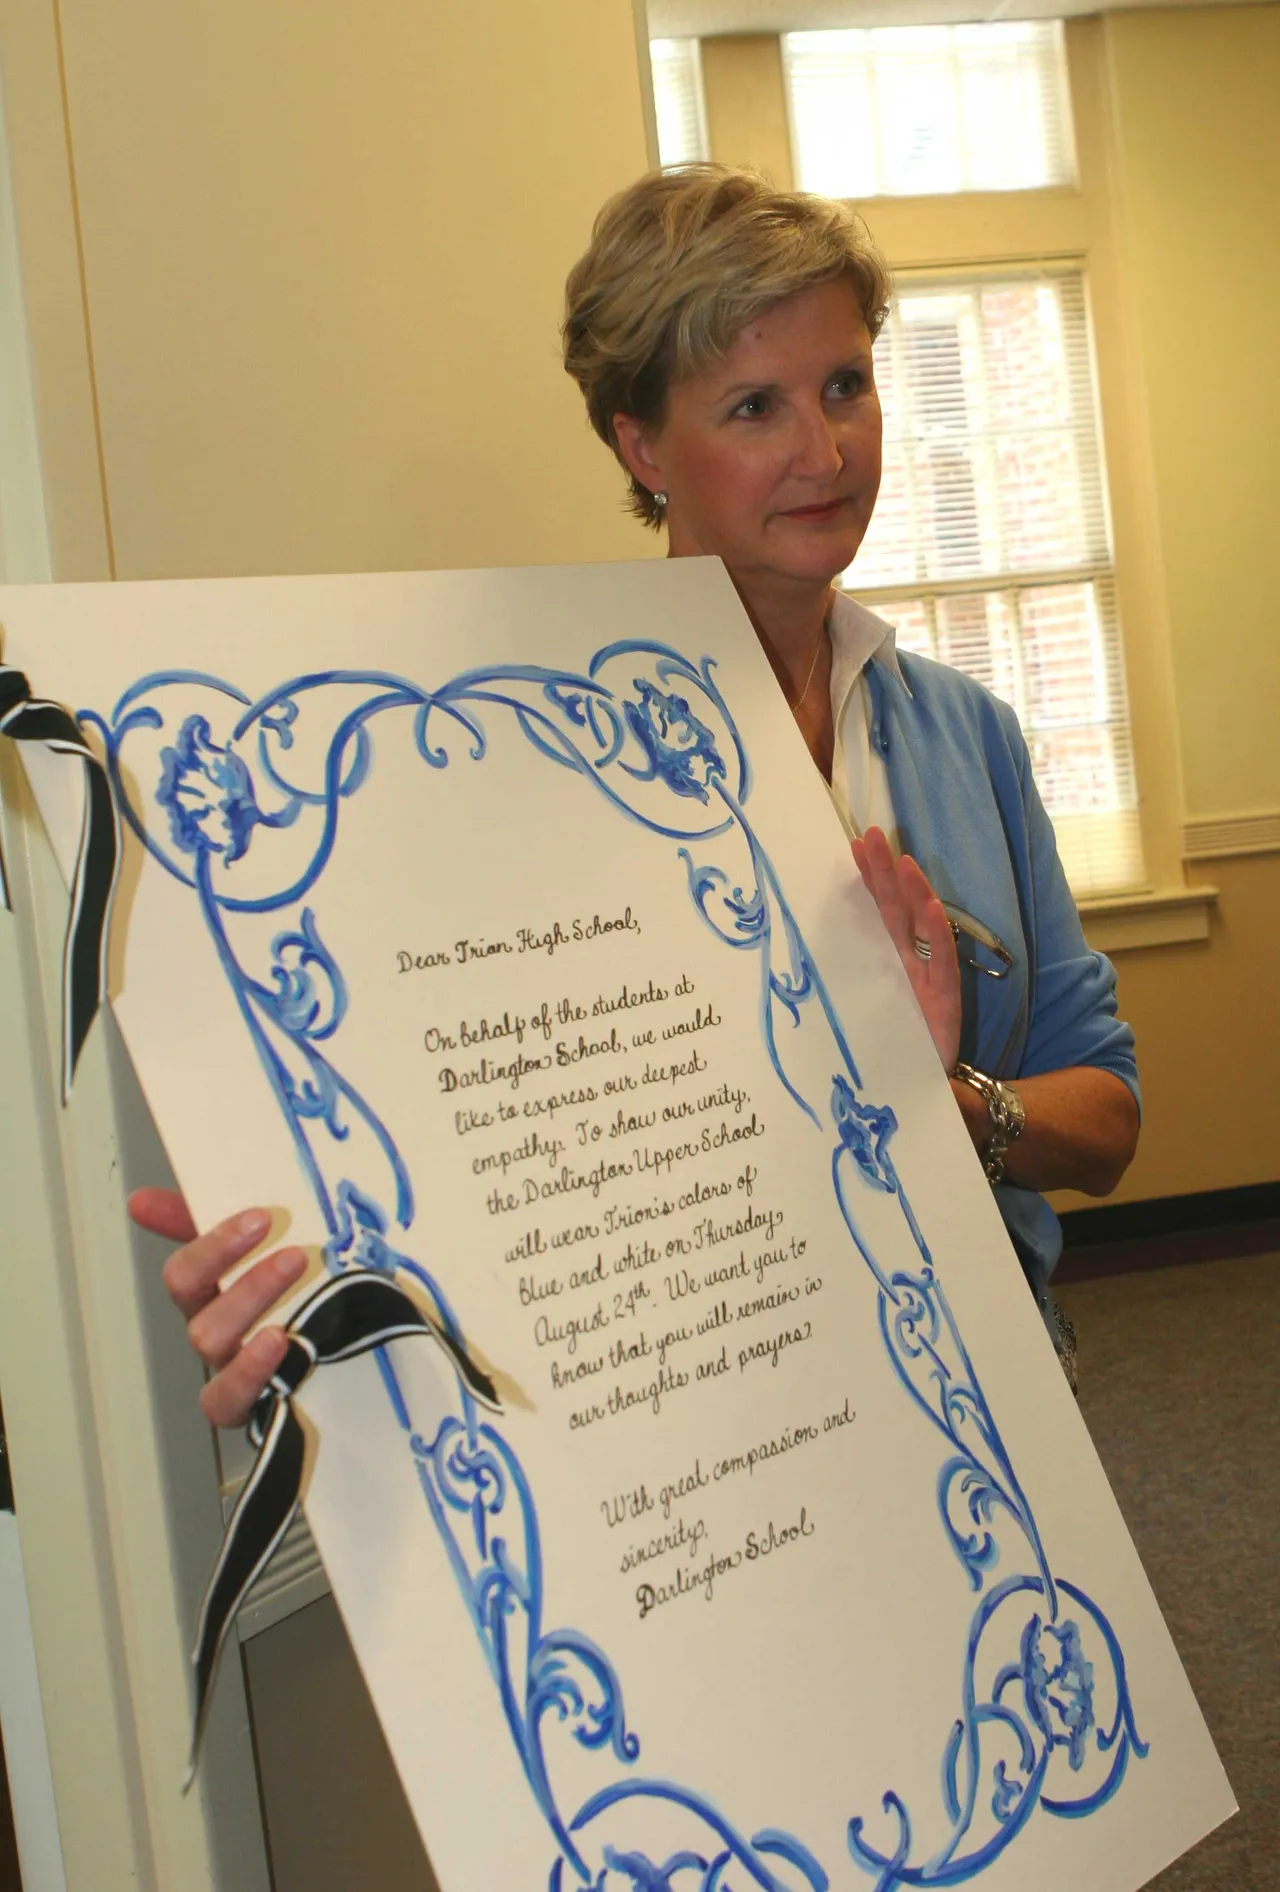 Dear Trion High School,
On behalf of the students at
Darlington School, we would
like to express our deepest
empathy. To show our unity,
the Darlington Upper School
will wear Trion's colors of
blue and white on Thursday
August 24th. We want you to
know that you will remain in
our thoughts and prayers.
With great compassion and
sincerity,
Darlington School